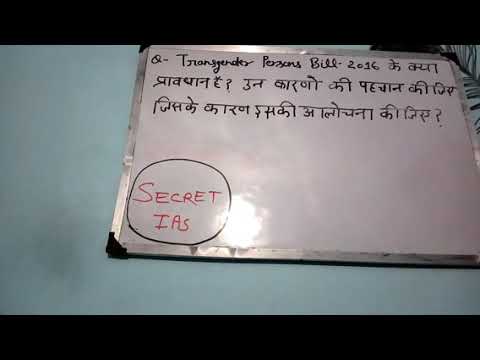 Q- Transgender Persons Bill-2016 के क्या
प्रावधान हैं? उन कारणो की पहचान कीजिए
जिसके कारण इसकी आलोचना की जिए?
SECRET
IAS